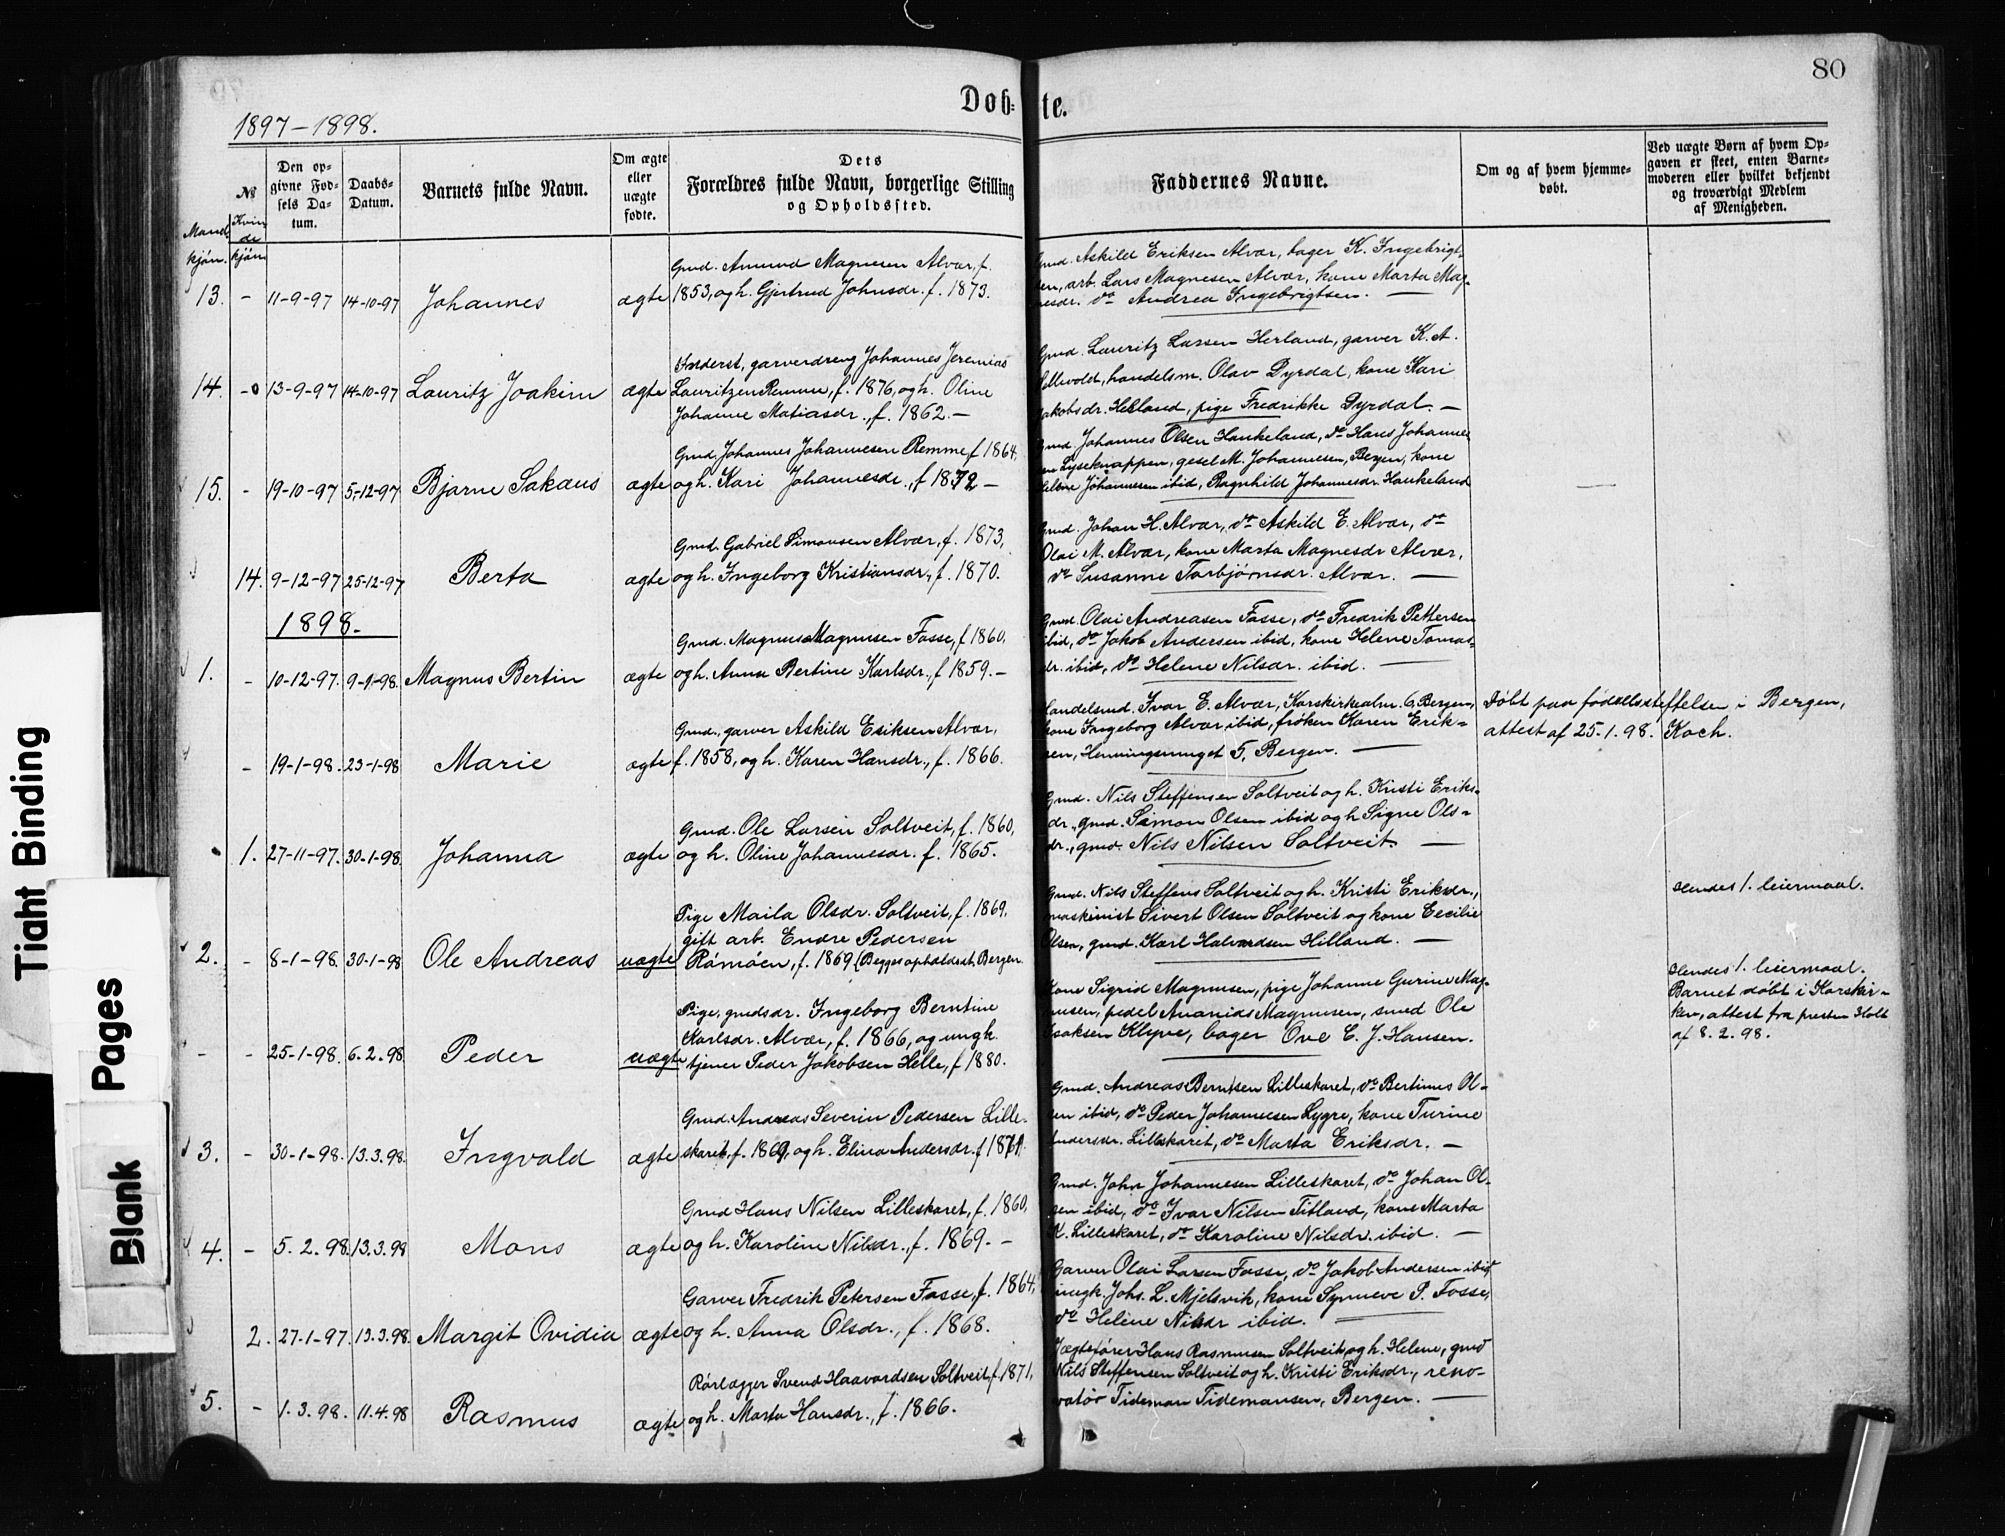 80
Døb- te.
1897-1898.
№
Mand-
kjøn.
Kvin
de
kjøn
Den op-
givne Fød-
sels Da-
tum.
Daabs-
Datum.
Barnets fulde Navn.
Om ægte
eller
uægte
fødte.
Dets
Forældres fulde Navn, borgerlige Stilling
og Opholdssted.
Faddernes Navne.
Om og af hvem hjemme-
døbt.
Ved uægte Børn af hvem Op-
gaven er skeet, enten Barne-
moderen eller hvilket bekjendt
og troværdigt Medlem
af Menigheden.
13. - 11-9-97 14-10-97 Johannes ægte
Gmd. Amund Magnesen Alvær, f.
1853, og h. Gjertrud Johnsdr. f. 1873.
Gmd. Askild Eriksen Alvær, bager K. Ingebrigt-
sen, arb. Lars Magnesen Alvær, kone Marta Mag-
nesdr. do Andrea Ingebrigtsen. -
14. - 13-9-97 14-10-97 Lauritz Joakim ægte
Holderst, garverdreng Johannes Jeremias
Lauritzen Remme, f. 1876, og h. Oline
Johanne Matiasdr., f. 1862. -
Gmd. Lauritz Larsen Herland, garver K. A.
handelsm. Olav Dyrdal, kone Kari
Jakobsdr. Herland, pige Fredrikke Dyrdal. -
15. - 19-10-97 5-12-97 Bjarne Sakaus ægte
Gmd. Johannes Johannesen Remme f 1864,
og h. Kari Johannesdr., f 1872 -
Gmd. Johannes Olsen Haukeland, do Hans Johannes-
en Lyseknappen, gesel M. Johannesen, Bergen, kone
Helene Johannesen ibid, Ragnhild Johannesdr. Haukeland
14. 9-12-97 25-12-97 Berta ægte
Gmd. Gabriel Simonsen Alvær, f. 1873,
og h. Ingeborg Kristiansdr., f. 1870.
Gmd. Johan H. Alvær, do Askild E. Alvær, do
Olai M. Alvær, kone Marta Magnesdr Alvær,
do Susanne Torbjørnsdr. Alvær. -
1898.
1. - 10-12-97. 9-1-98. Magnus Bertin ægte
Gmd. Magnus Magnusen Fosse, f 1860,
og h. Anna Bertine Karlsdr., f 1859. -
Gmd. Olai Andreasen Fosse, do Fredrik Pettersen
ibid, do Jakob Andersen ibid, kone Helene Tomas-
dr. ibid, do Helene Nilsdr. ibid. -
- 19-1-98. 23-1-98 Marie ægte
Gmd., garver Askild Eriksen Alvær,
f. 1858, og h. Karen Hansdr., f. 1866.
Handelsmd. Ivar E. Alvær, Korskirkealm. 6, Bergen,
kone Ingeborg Alvær ibid, frøken Karen Erik-
sen, Henningsmuget 5, Bergen. -
Døbt paa fødselsstiftelsen i Bergen,
attest af 25-1-98. Koch.
1. 27-11-97. 30-1-98. Johanna ægte
Gmd. Ole Larsen Soltveit, f. 1860,
og h. Oline Johannesdr. f. 1865.
Gmd. Nils Steffensen Soltveit og h. Kristi Eriks-
dr., gmd. Simon Olsen ibid og h Signe Ols-
dr., gmd. Nils Nilsen Soltveit. -
2. - 8-1-98. 30-1-98 Ole Andreas uægte
Pige Maila Olsdr. Soltveit, f. 1869,
gift arb. Endre Pedersen
Rømøen, f. 1869 (Begges opholdsst. Bergen.
Gmd. Nils Steffens Soltveit og h. Kristi Eriksdr.,
maskinist Sivert Olsen Soltveit og kone Cecilie
Olsen, gmd. Karl Halvardsen Hilland. -
Hendes 1. leiermaal.
- - 25-1-98. 6.2.98. Peder uægte
Pige, gmdsdr. Ingeborg Berntine
Karlsdr. Alvær, f. 1866, og ungk.
tjener Peder Jakobsen Helle, f 1880.
Kone Sigrid Magnusen, pige Johanne Gurine Mag-
nusen, pedel Ananias Magnusen, smed Ole
Isaksen Klyve, bager Ove C. J. Hansen.
Hendes 1. leiermaal.
Barnet døbt i Korskir-
ken, attest fra presten Holt
af 8.2.98.
3. - 30-1-98. 13.3.98. Ingvald ægte
Gmd. Andreas Severin Pedersen Lille-
skaret, f. 1869, og h. Elina Andersdr. f 1871.
Gmd. Andreas Berntsen Lilleskaret, do Bertinus Ol-
sen ibid, do Peder Johannesen Lygre, kone Turine
Andersdr. Lilleskaret, do Marta Eriksdr. -
4. - 5.2.98. 13.3.98 Mons ægte
Gmd Hans Nilsen Lilleskaret, f. 1860,
og h. Karoline Nilsdr., f. 1869. -
Gmd. John Johannesen Lilleskaret, do Johan Ol-
sen ibid, do Ivar Nilsen Titland, kone Marta
K. Lilleskaret, do Karoline Nilsdr. ibid. -
2. 27-1-97. 13.3.98. Margit Ovidia ægte
Garver Fredrik Petersen Fosse, f. 1864,
og h. Anna Olsdr., f. 1868.
Garver Olai Larsen Fosse, do Jakob Andersen ibid
ungk. Johs. L. Mjelsvik, kone Synneve P. Fosse,
do Helene Nilsdr ibid. -
5. - 1.3.98. 11.4.98 Rasmus ægte
Rørlægger Svend Haavardsen Soltveit, f 1871,
og h. Marta Hansdr., f. 1866.
Jægtefører Hans Rasmusen Soltveit, og h. Helene, gmd
Nils Steffensen Soltveit og h. Kristi Eriksdr., reno-
vatør Tideman Tidemansen, Bergen. -
Tiaht Binding
Blank Pages